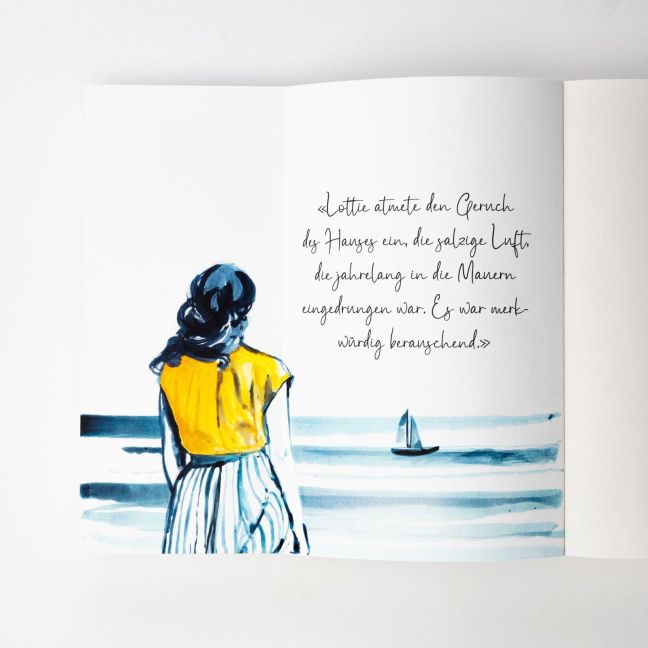 «Lottie atmete den Geruch
des Hauses ein, die salzige Luft,
die jahrelang in die Mauern
eingedrungen war. Es war merk-
würdig berauschend.»